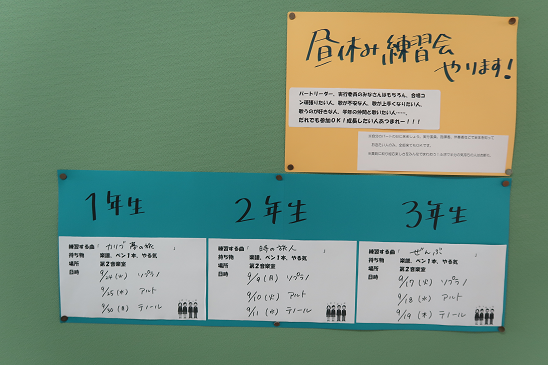 昼休み練習会
やります!
パートリーダー、実行委員のみなさんはもちろん、合唱コ
ン頑張りたい人、歌が不安な人、歌が上手くなりたい人、
歌うのが好きな人、学年の仲間と歌いたい人…、
だれでも参加OK!成長したい人あつまれー!!!
1年生
練習する曲「カリブ 夢の旅」
持ち物 楽譜、ペン1本、やる気
場所 第2音楽室
日時 9/24(火) ソプラノ
9/25(水) アルト
9/30(月) テノール
2年生
練習する曲「時の旅人」
持ち物 楽譜、ペン1本、やる気
場所 第2音楽室
日時 9/9(月) ソプラノ
9/10(火) アルト
9/11(水) テノール
3年生
練習する曲「ぜんぶ」
持ち物 楽譜、ペン1本、やる気
場所 第2音楽室
日時 9/17(火) ソプラノ
9/18(水) アルト
9/19(木) テノール